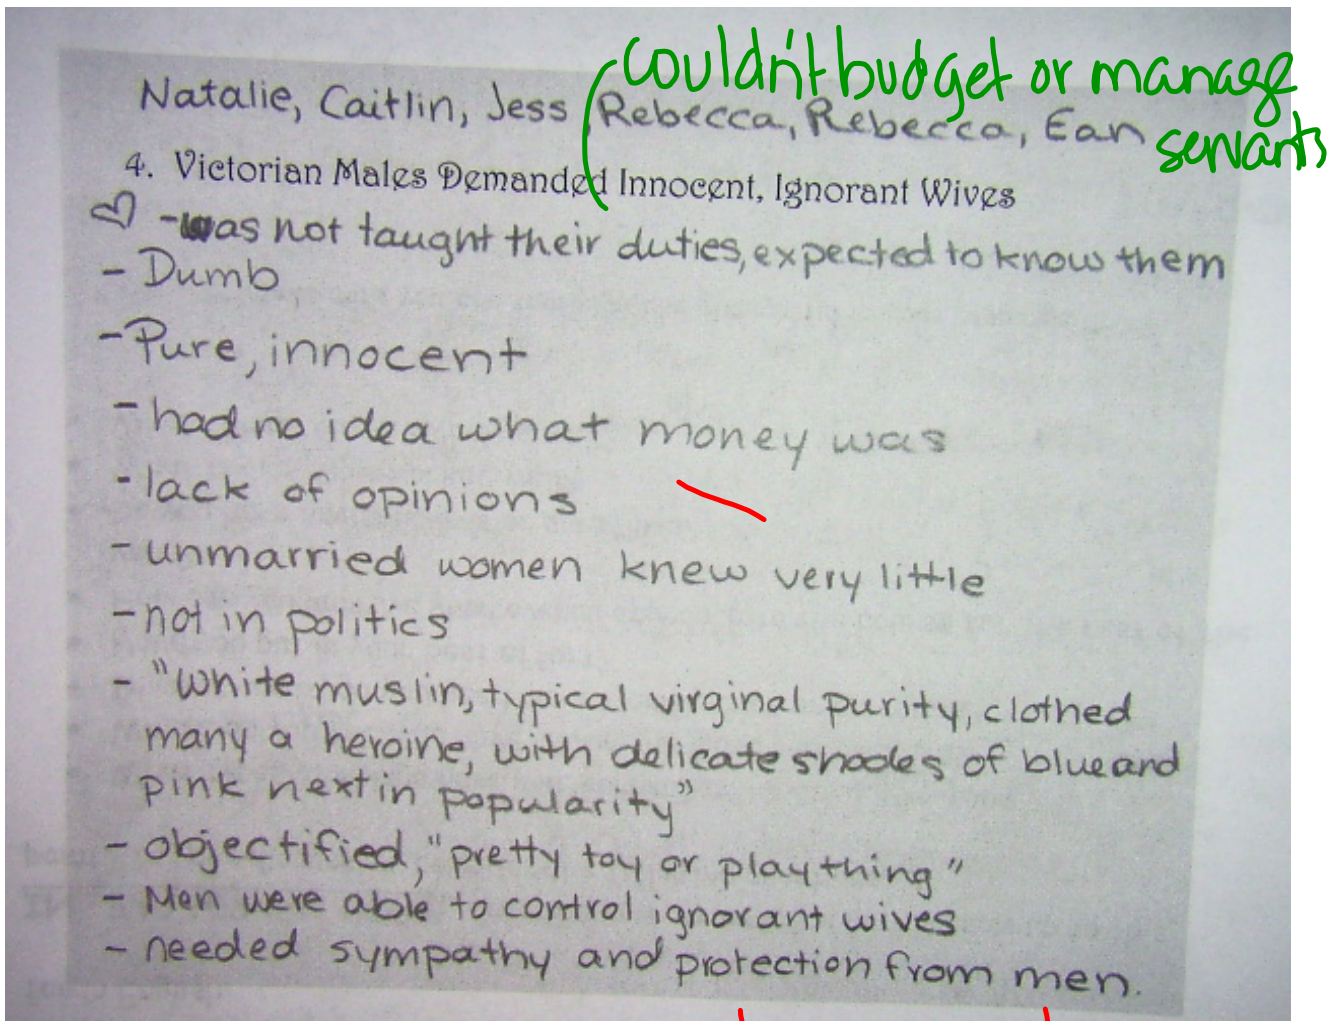 couldn't budget or manage
servants
Natalie, Caitlin, Jess, Rebecca, Rebecca, Ean
4. Victorian Males Demanded Innocent, Ignorant Wives
-was not taught their duties, expected to know them
- Dumb
- Pure, innocent
- had no idea what money was
- lack of opinions
- unmarried women knew very little
- not in politics
- "White muslin, typical virginal purity, clothed
many a heroine, with delicate shades of blue and
pink next in popularity"
- objectified, "pretty toy or play thing"
- Men were able to control ignorant wives
- needed sympathy and protection from men.